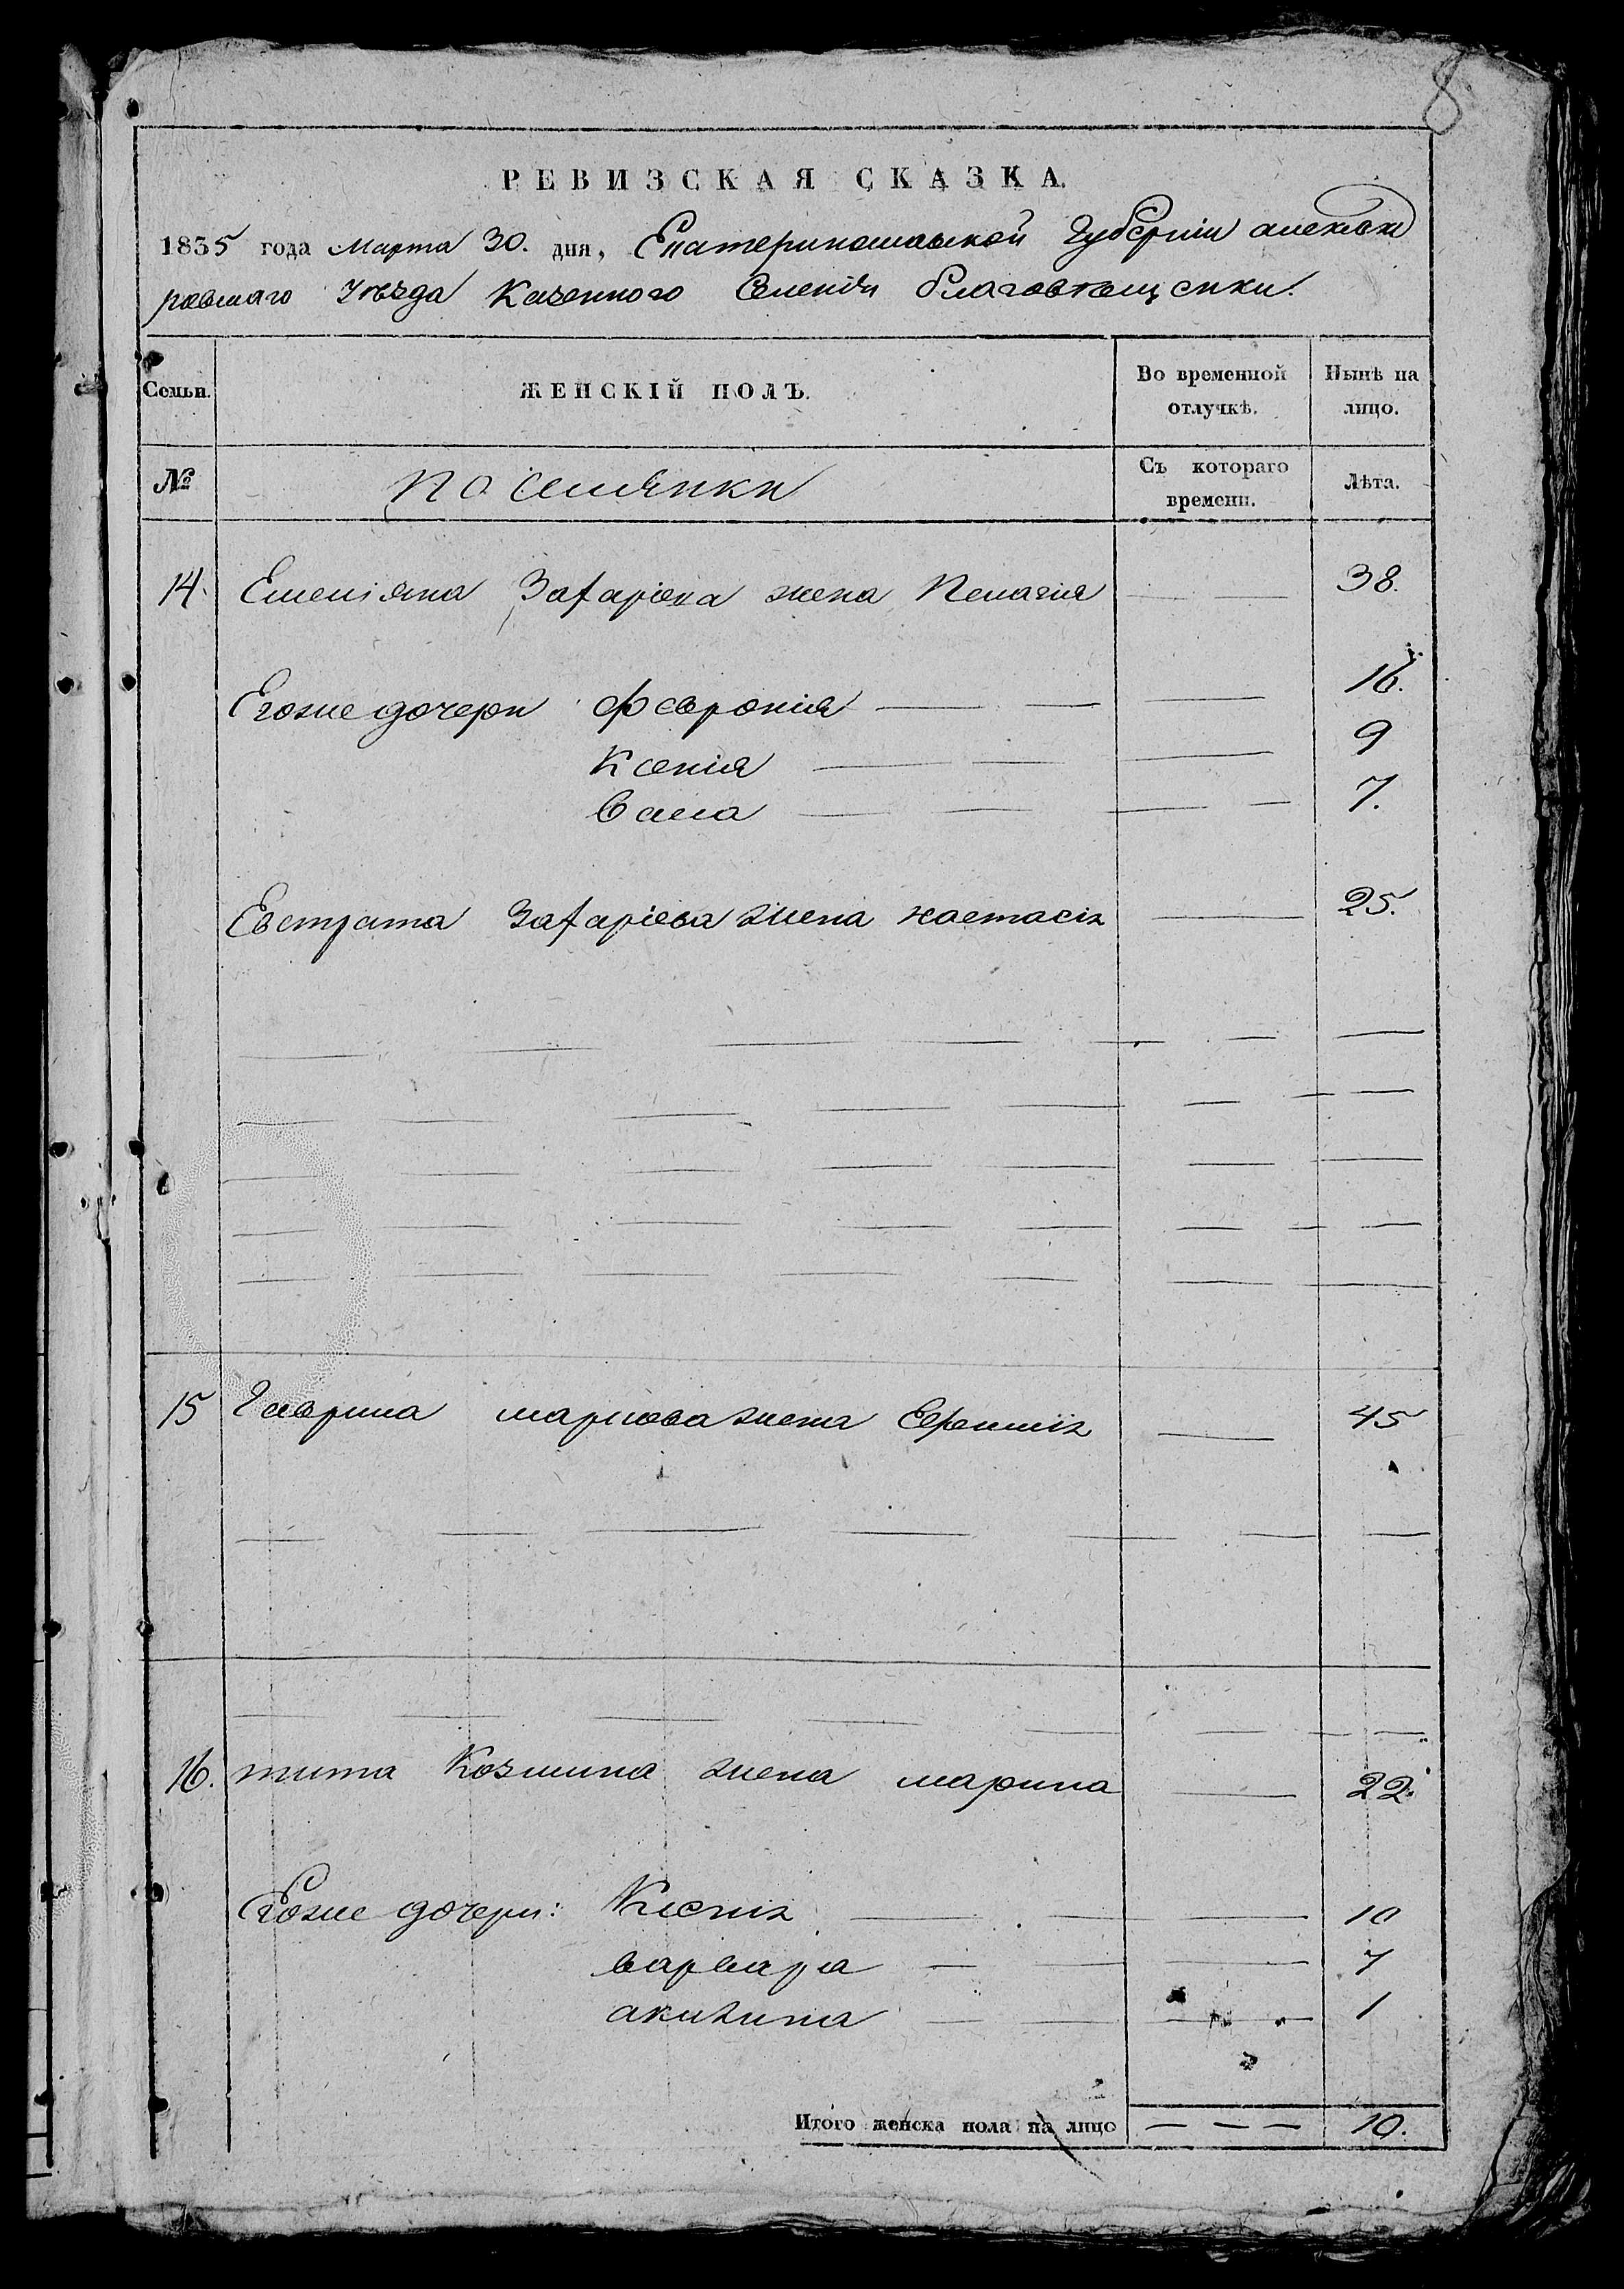 8
РЕВИЗСКАЯ СКАЗКА.
1835 года Марта 30. дня, Екатериношавской Губернии алексан
ровшаго Уѣзда Казенного Селенія благовѣщенки.
Семьи. ЖЕНСКІЙ ПОЛЪ. Во временной отлучкѣ. Нынѣ на лицо.
№ поселянки Съ котораго времени. Лѣта.
14. Емеліяна Захаріева жена Пелагия — — 38.
Егоже дочери Феврония — — — 16.
Ксения — — — 9
Васса — — — — 7.
Евстрата Захаріева жена настасія — 25.
15 Гаврила маркова жена Ефимия — 45
16. тита Козмина жена марина — 22.
Егоже дочери: Ксения — — — 10
варвара — — — 7
акилина — — — 1
Итого женска пола на лицо — — — 10.